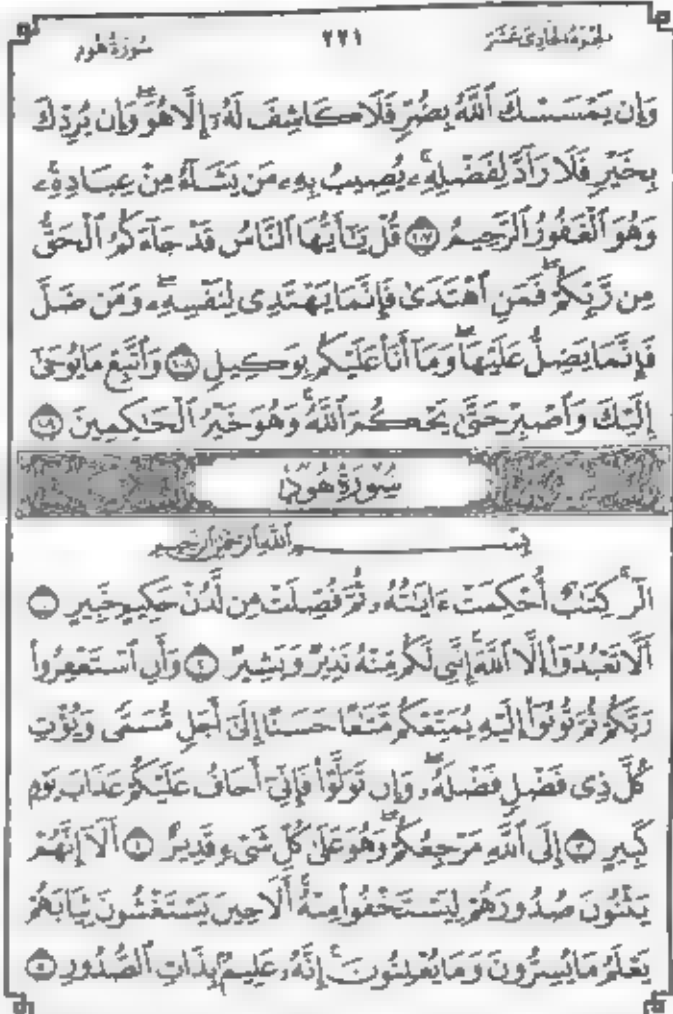 الجزء الحادي عشر ٢٢١ سورة هود
وَإِن يَمْسَسْكَ ٱللَّهُ بِضُرٍّ فَلَا كَاشِفَ لَهُۥٓ إِلَّا هُوَ ۖ وَإِن يُرِدْكَ
بِخَيْرٍ فَلَا رَآدَّ لِفَضْلِهِۦ ۚ يُصِيبُ بِهِۦ مَن يَشَآءُ مِنْ عِبَادِهِۦ ۚ
وَهُوَ ٱلْغَفُورُ ٱلرَّحِيمُ ١٠٧ قُلْ يَٰٓأَيُّهَا ٱلنَّاسُ قَدْ جَآءَكُمُ ٱلْحَقُّ
مِن رَّبِّكُمْ ۖ فَمَنِ ٱهْتَدَىٰ فَإِنَّمَا يَهْتَدِى لِنَفْسِهِۦ ۖ وَمَن ضَلَّ
فَإِنَّمَا يَضِلُّ عَلَيْهَا ۖ وَمَآ أَنَا۠ عَلَيْكُم بِوَكِيلٍ ١٠٨ وَٱتَّبِعْ مَا يُوحَىٰٓ
إِلَيْكَ وَٱصْبِرْ حَتَّىٰ يَحْكُمَ ٱللَّهُ ۚ وَهُوَ خَيْرُ ٱلْحَٰكِمِينَ ١٠٩
سُورَةُ هُودٍ
بِسْمِ ٱللَّهِ ٱلرَّحْمَٰنِ ٱلرَّحِيمِ
الٓر ۚ كِتَٰبٌ أُحْكِمَتْ ءَايَٰتُهُۥ ثُمَّ فُصِّلَتْ مِن لَّدُنْ حَكِيمٍ خَبِيرٍ ١
أَلَّا تَعْبُدُوٓا۟ إِلَّا ٱللَّهَ ۚ إِنَّنِى لَكُم مِّنْهُ نَذِيرٌ وَبَشِيرٌ ٢ وَأَنِ ٱسْتَغْفِرُوا۟
رَبَّكُمْ ثُمَّ تُوبُوٓا۟ إِلَيْهِ يُمَتِّعْكُم مَّتَٰعًا حَسَنًا إِلَىٰٓ أَجَلٍ مُّسَمًّى وَيُؤْتِ
كُلَّ ذِى فَضْلٍ فَضْلَهُۥ ۖ وَإِن تَوَلَّوْا۟ فَإِنِّىٓ أَخَافُ عَلَيْكُمْ عَذَابَ يَوْمٍ
كَبِيرٍ ٣ إِلَى ٱللَّهِ مَرْجِعُكُمْ ۖ وَهُوَ عَلَىٰ كُلِّ شَىْءٍ قَدِيرٌ ٤ أَلَآ إِنَّهُمْ
يَثْنُونَ صُدُورَهُمْ لِيَسْتَخْفُوا۟ مِنْهُ ۚ أَلَا حِينَ يَسْتَغْشُونَ ثِيَابَهُمْ
يَعْلَمُ مَا يُسِرُّونَ وَمَا يُعْلِنُونَ ۚ إِنَّهُۥ عَلِيمٌۢ بِذَاتِ ٱلصُّدُورِ ٥